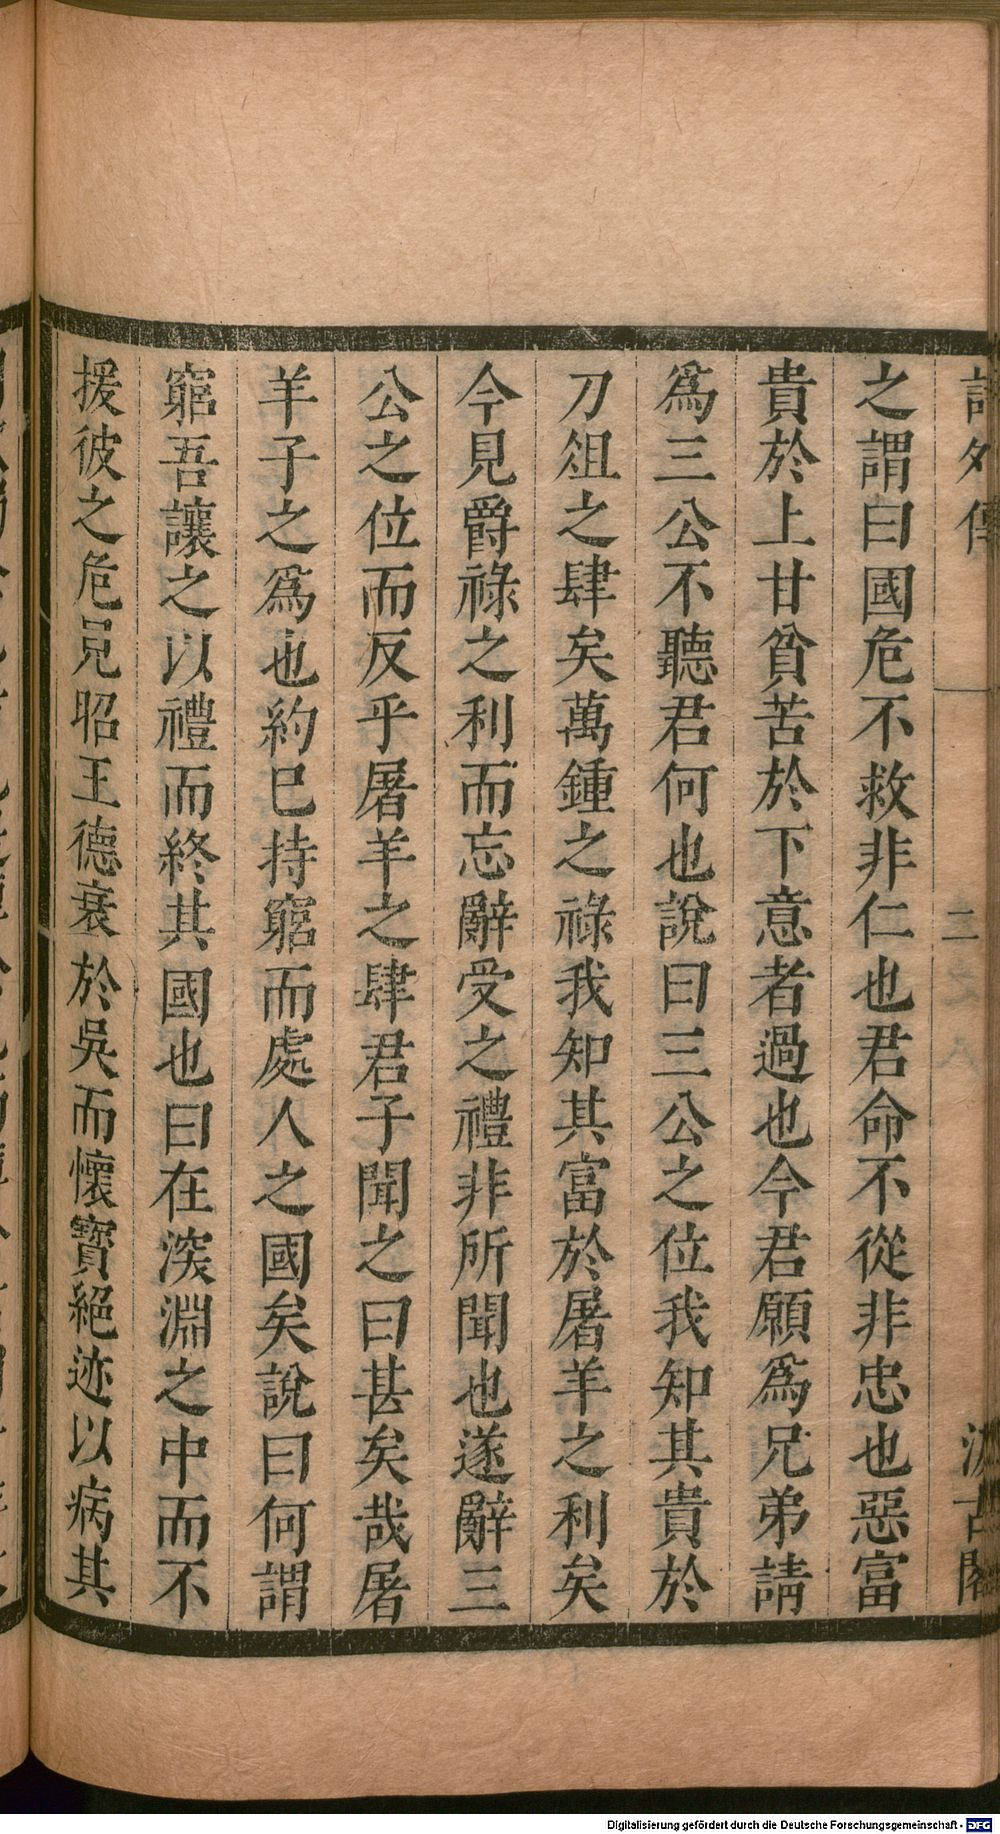 詩外傳
二
汲古閣
之謂曰國危不救非仁也君命不從非忠也惡富
貴於上甘貧苦於下意者過也今君願爲兄弟請
爲三公不聽君何也說曰三公之位我知其貴於
刀俎之肆矣萬鍾之祿我知其富於屠羊之利矣
今見爵祿之利而忘辭受之禮非所聞也遂辭三
公之位而反乎屠羊之肆君子聞之曰甚矣哉屠
羊子之爲也約巳持窮而處人之國矣說曰何謂
窮吾讓之以禮而終其國也曰在深淵之中而不
援彼之危見昭王德衰於吳而懷寶絕迹以病其
Digitalisierung gefördert durch die Deutsche Forschungsgemeinschaft - DFG